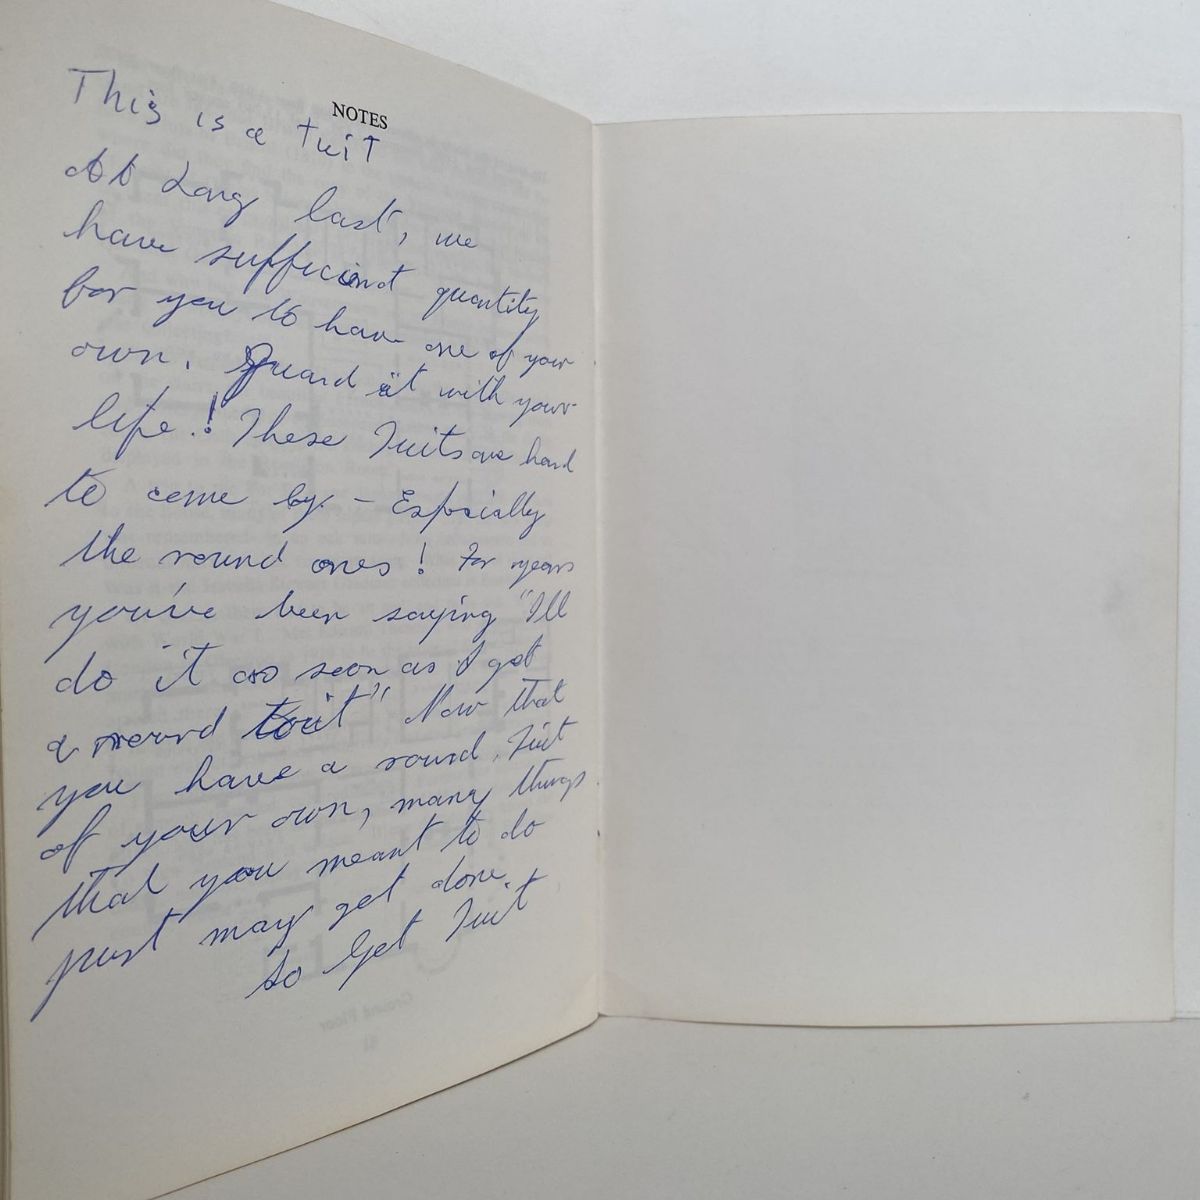 NOTES
This is a tuit
At Long last, we
have sufficient quantity
for you to have one of your
own. Guard it with your
life! These Tuits are hard
to come by - Especially
the round ones! For years
you've been saying "I'll
do it as soon as I get
a round tuit" Now that
you have a round Tuit
of your own, many things
that you meant to do
just may get done.
So Get Tuit
Ground Floor